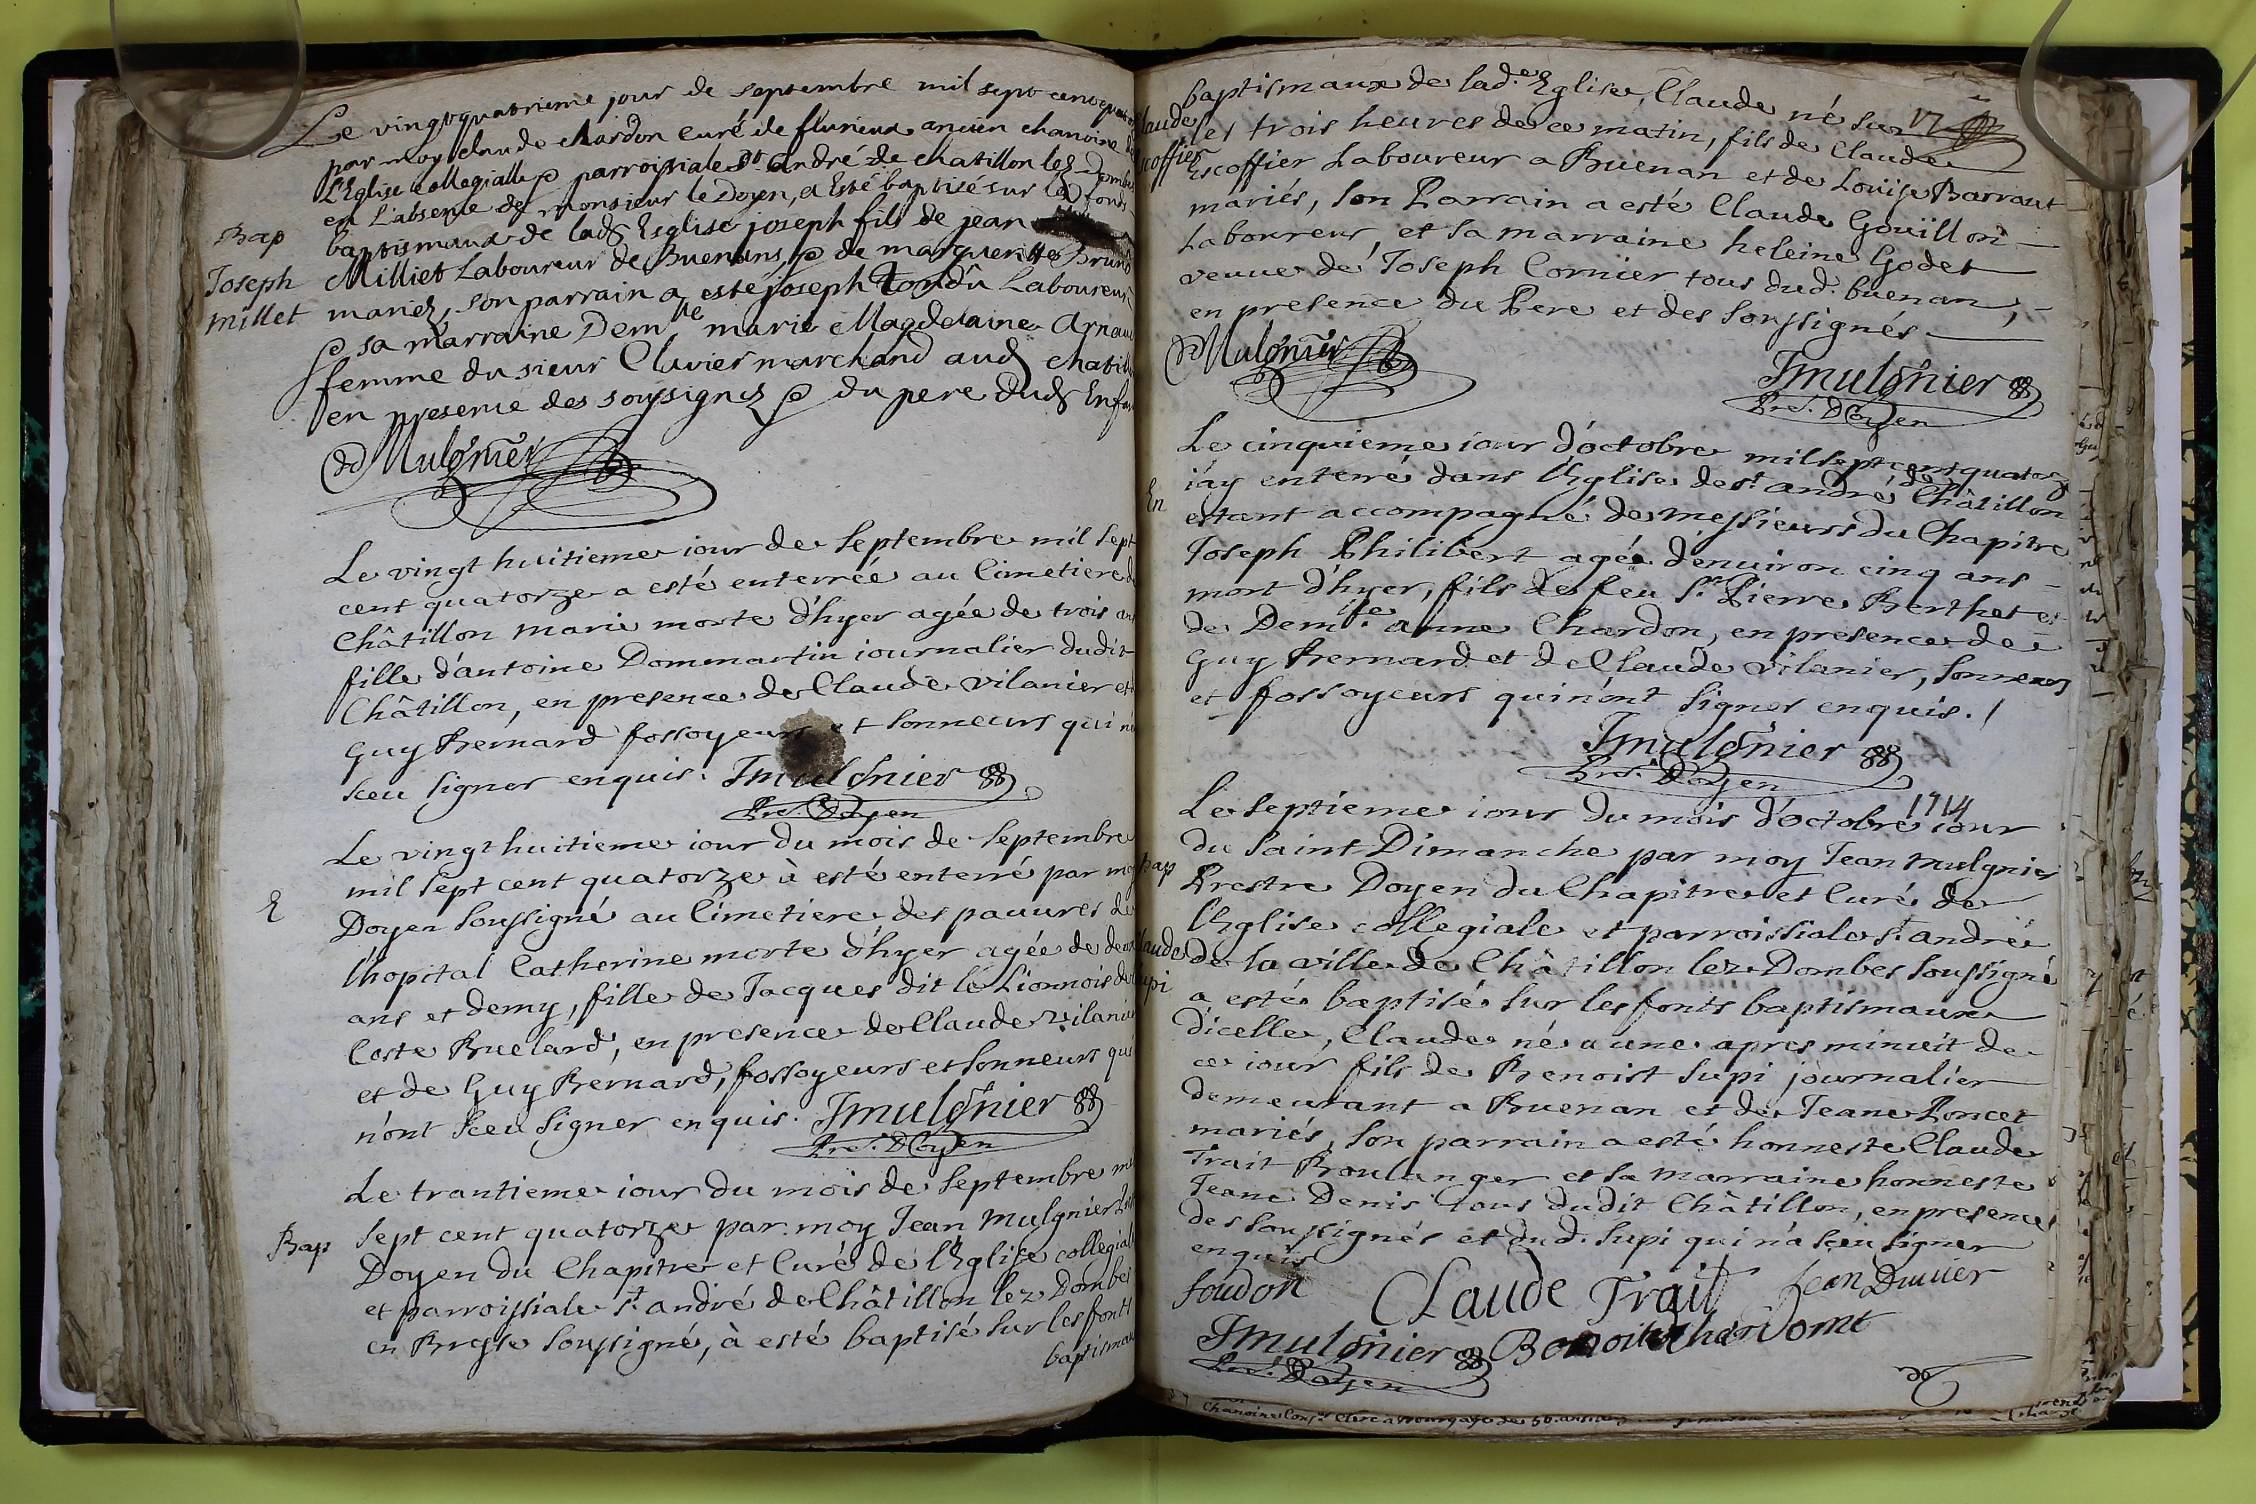 Le vingtquatrieme jour de septembre mil sept cent quator
par moy claude chardon curé de flurieux ancien chanoine de
L'Eglise collegialle & parroissiale St André de chatillon lez Dombe
en L'absence de monsieur le Doyen, a Esté baptisé sur les fonds
baptismaux de lad Esglise joseph fils de jean
Bap
Joseph
millet
Milliet Laboureur de Buenans & de marguerite Brun
mariez, son parrain a esté joseph Tondû Laboureur
& sa marraine Demlle marie Magdelaine Arnau
femme du sieur Cluvier marchand aud chatill
en presence des soussignez & du pere dud Enfan
Mulgnier
Le vingt huitieme iour de septembre mil sept
cent quatorze a esté enterrée au Cimetiere de
Châtillon marie morte d'hyer agée de trois ans
fille d'antoine Dommartin iournalier dudit
Châtillon, en presence de Claude vilanier et
Guy Bernard fossoyeurs et sonneurs qui n'
sceu signer enquis. Jmulgnier
Pre. Doyen
E
Le vingt huitieme iour du mois de septembre
mil sept cent quatorze à esté enterré par moy
Doyen soussigné au Cimetiere des pauvres de
l'hopital Catherine morte d'hyer agée de deux
ans et demy, fille de Jacques dit le Lionnois de
Coste Buelard, en presence de Claude vilanier
et de Guy Bernard, fossoyeurs et sonneurs qui
n'ont sceu signer enquis. Jmulgnier
Pre. Doyen
Bap
Le trantieme iour du mois de septembre m
sept cent quatorze par moy Jean mulgnier
Doyen du Chapitre et Curé de l'Eglise collegiale
et parroissiale st andré de Châtillon lez Dombes
en Bresse soussigné, à esté baptisé sur les fonts
baptismau
17
baptismaux de lad.e Eglise, Claude né sur
Claude
Escoffier
les trois heures de ce matin, fils de Claude
Escoffier Laboureur a Buenan et de Loüise Barraut
mariés, son Parrain a esté Claude Goüillon
Laboureur, et sa marraine heleine Godet
veuve de Joseph Cornier tous dud. buenan,
en presence du Pere et des soussignés
Mulgnier
Jmulgnier
Pre. Doyen
En
Le cinquieme iour d'octobre mil sept cent quatorze
i'ay enterré dans l'Eglise de st andré de Châtillon
estant accompagné de messieurs du Chapitre
Joseph Philibert agée d'environ cinq ans
mort d'hyer, fils de feu sr. Pierre Berthet et
de Demlle anne Chardon, en presence de
Guy Bernard et de Claude vilanier, sonneurs
et fossoyeurs qui n'ont signer enquis.
Jmulgnier
Pre. Doyen
bap
Claude
Supi
Le septieme iour du mois d'octobre 1714 iour
du saint Dimanche par moy Jean mulgnier
Prestre Doyen du Chapitre et Curé de
l'Eglise collegiale et parroissiale st andré
de la ville de Châtillon lez Dombes soussigné
a esté baptisé sur les fonts baptismaux
d'icelle, Claude né a une apres minuit de
ce iour fils de Benoist Supi journalier
demeurant a Buenan et de Jeane Poncet
mariés, son parrain a esté honneste Claude
Trait Boulanger et sa marraine honneste
Jeane Denis tous dudit Châtillon, en presence
des soussignés et dud. Supi qui n'a sceu signer
enquis
foudon
CLaude Trait
Jean Duvver
Jmulgnier
Pre. Doyen